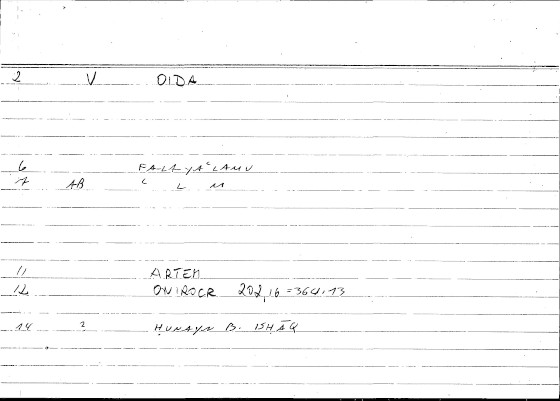 2 V OIDA
6 FALA YAʿLAMU
7 AB ʿ L M
11 ARTEM
12 ONIROCR 202,16=364.13
14 2 ḤUNAYN B. ISḤĀQ